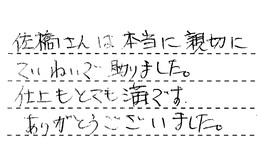 佐橋さんは本当に親切に
ていねいで助りました。
仕上もとても満です.
ありがとうございました。